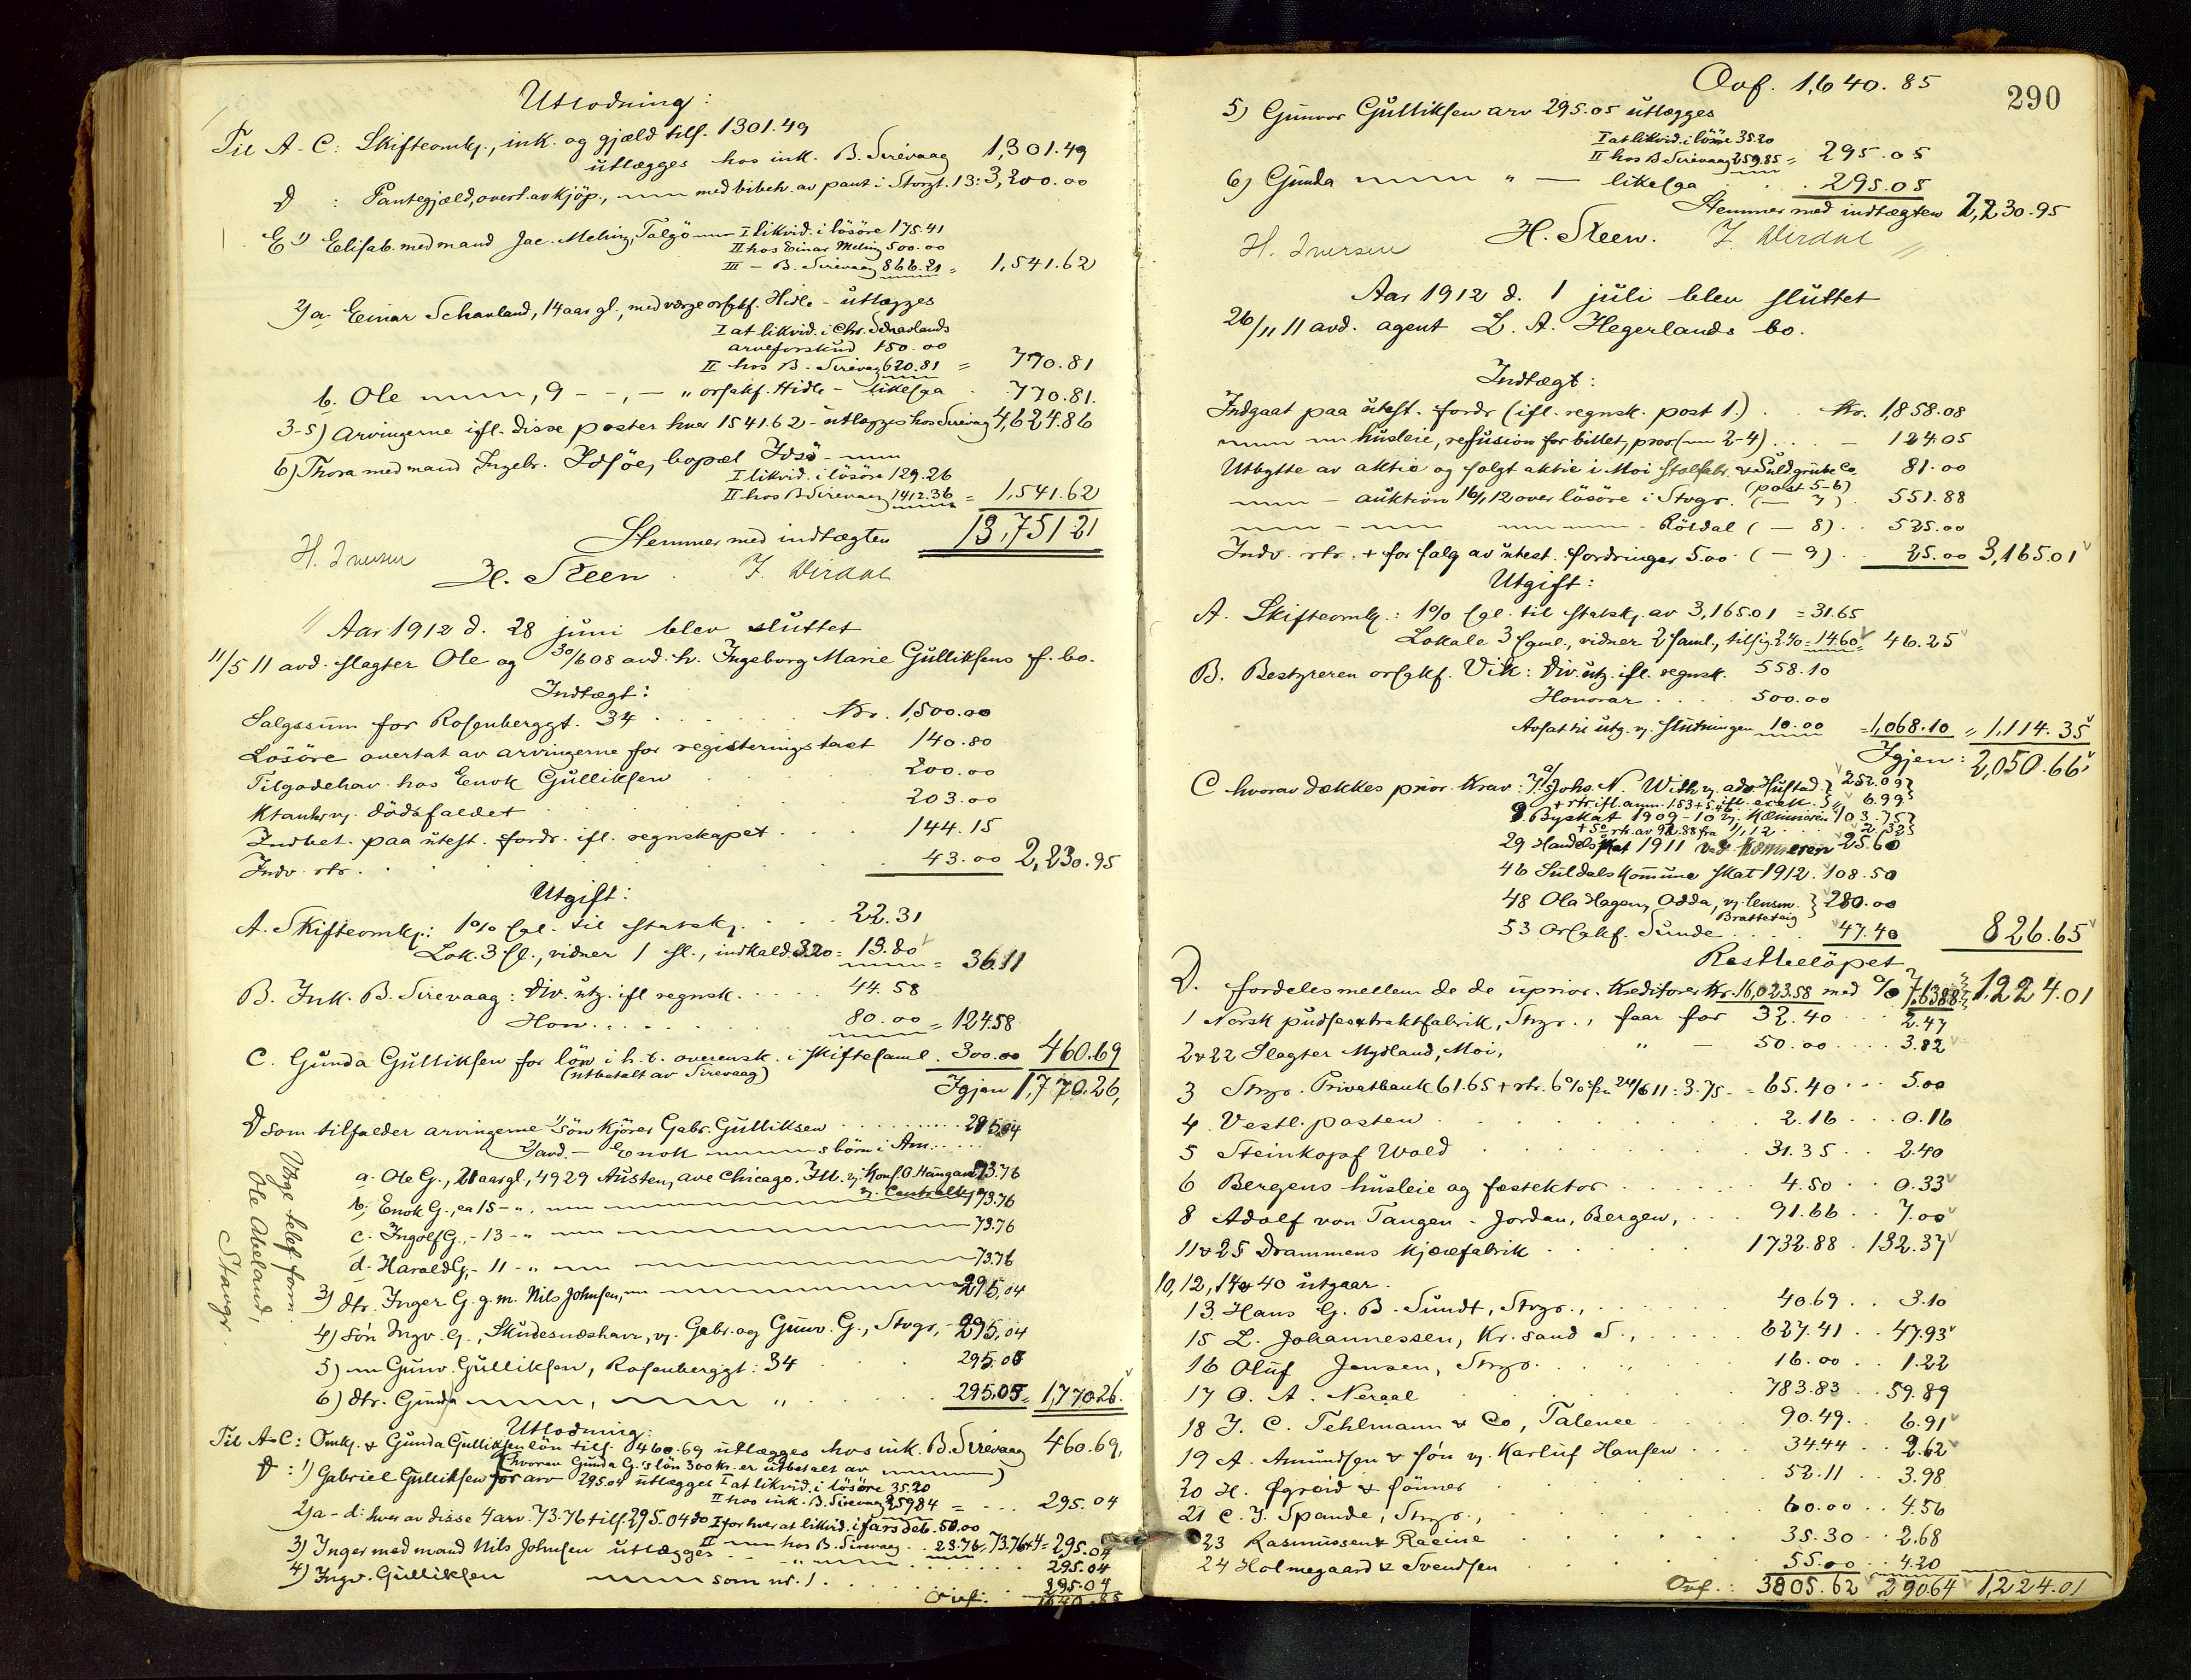 Utlodning:
Til A-C: Skifteomk., ink. og gjæld tils. 1301.49
utlægges hos ink. B. Sirevaag 1,301.49
D : Pantegjæld, overt. av kjöp., — med bibeh. av pant i Storgt. 13: 3,200.00
E 1) Elisab. med mand Jac. Meling, Talgö — I likvid. i lösöre 175.41
II hos Einar Meling 500.00
III — B. Sirevaag 866.21 = 1,541.62
2) a. Einar Schanland, 14 aar gl., med værge orsgkf. Hidle - utlægges
I at likvid. i Chr. Schanlands
arveforskud 150.00
II hos B. Sirevaag 620.81 = 770.81
b. Ole —, 9 - -, — " orsgkf. Hidle - likesaa 770.81.
3-5) Arvingerne ifl. disse poster hver 1541.62 - utlægges hos Sirevag 4,624.86
6) Thora med mand Ingebr. Idsöe, bopæl Idsö -
I likvid. i lösöre 129.26
II hos B Sirevaag 1412.36 = 1,541.62
Stemmer med indtægten 13,751.21
H. Iversen H. Steen. J. Virdal
Aar 1912 d. 28 juni blev sluttet
11/5 11 avd. slagter Ole og 30/6 08 avd. h. Ingeborg Marie Gulliksens f. bo.
Indtægt:
Salgssum for Rosenberggt. 34 . . . Kr. 1,500.00
Lösöre overtat av arvingerne for registeringstaxt 140.80
Tilgodehav. hos Enok Gulliksen 200.00
Ktanh. v. dödsfaldet 203.00
Indbet. paa utest. fordr. ifl. regnskapet . . . 144.15
Indv. rtr. 43.00 2,230.95
Utgift:
A. Skifteomk.: 1% sgl. til statsk. . . . 22.31
Lok. 3 sl., vidner 1 sl., indkald. 3.20 = 13.80 = 36.11
B. Ink. B. Sirevaag: Div. utg. ifl regnsk. . . 44.58
Hon. . . . 80.00 = 124.58
C. Gunda Gulliksen for lön i h. t. overensk. i skiftesaml. 300.00 460.69
(utbetalt av Sirevaag) Igjen 1,770.26,
D som tilfalder arvingerne 1) sön kjörer Gabr. Gulliksen . . . 295.04
2) avd. - Enok — s börn i Am. . .
a. Ole G., 21 aar gl., 4929 Austen, ave Chicago. Ill. v. Konf. O. Haugan 73.76
b. Enok G., ca 15 - ". — v. Centralb. 73.76
c. Ingolf G., - 13 - " — 73.76
d. Harald G., - 11 - " — 73.76
3) dtr. Inger G. g. m. Nils Johnsen, — 295.04
4) sön Ingv. G., Skudesneshavn, v. Gabr. og Gunv. G., Stvgr., - 295.04
5) — Gunv. Gulliksen, Rosenberggt: 34 . . 295.05
6) dtr. Gunda —, — " . . 295.05 = 1,770.26.
Vrge telef. form.
Ole Abeland,
Stavgr.
Utlodning:
Til A-C: Omk. & Gunda Gulliksen lön tils. 460.69 utlægges hos ink. B. Sirevaag 460.69,
(hvorav Gunda G.'s lön 300 kr. er utbetalt av —)
D : 1) Gabriel Gulliksen for arv 295.04 utlægges I at likvid. i lösöre 35.20
II hos ink. B. Sirevaag 259.84 = . . . 295.04
2) a - d: hver av disse 4 arv. 73.76 tils. 295.04 do I for hver at likvid. i fars deb. 50.00
II — hos B. Sirevaag . . 23.76, 73.76 x 4 = 295.04
3) Inger med mand Nils Johnsen utlægges . . " — . . . 295.04
4) Ingv. Gulliksen — som nr. 1 . . . 295.04
Ovf. 1640.85
290
Ovf. 1,640.85
5) Gunvor Gulliksen arv 295.05 utlægges
I at likvid. i lösöre 35.20
II hos B Sirevaag 259.85 = 295.05
6) Gunda — " — likesaa . . 295.05
Stemmer med indtægten 2,230.95
H. Iversen H. Steen. J. Virdal
Aar 1912 d. 1 juli blev sluttet
26/11 11 avd. agent L. A. Hegerlands bo.
Indtægt:
Indgaat paa utest. fordr (ifl. regnsk. post 1.) . . Kr. 1,858.08
— husleie, refusion for billet, prov (— 2-4) . . . - 124.05
Utbytte av aktie og solgt aktie i Moi Stolfabr. & Suld. grube Co 81.00
(post 5-6)
— - auktion 16/1 12 over lösöre i Stvgr. (— 7) . 551.88
— - — — Röldal ( — 8) . . 525.00
Indv. rtr. + for salg av utest. fordringer 5.00 ( — 9) . . 25.00 3,165.01
Utgift:
A. Skifteomk.: 1% sgl. til statsk. av 3,165.01 = 31.65
Lokale 3 saml., vidner 2 saml., tilsig. 2.40 = 14.60 = 46.25
B. Bestyreren orsgkf. Vik: Div. utg. ifl. regnsk. 558.10
Honorar . . . 500.00
Avsat til utg. v. slutningen 10.00 = 1,068.10 = 1,114.35
Igjen: 2,050.66
C hvorav dækkes prior. krav: Johs. N. With v. adv. Hustad } 252.09
+ rtr. ifl. anm. 1.53 + 5.46 ifl. exek. } 6.99
9. Byskat 1909-10 v. Kæmneren 103.75
+ 5% rtr. av 92.88 fra 1/1 12 . . 2.32
29 Handelsskat 1911 ved Kæmneren 25.60
46 Suldals kommune skat 1912. 108.50
48 Ola Hagen, Odda, v. lensm. Bratteteig } 280.00
53 Orsgkf. Sunde . . . 47.40 826.65
Restbelöpet
D. fordeles mellem de de uprior. kreditorer Kr. 16,023.58 med % 7,6388 1224.01
1 Norsk pudseextraktfabrik, Stvgr., faar for 32.40 . . . 2.47
2 & 22 Slagter Mydland, Moi, " - 50.00 . . . 3.82
3 Stvgr. Privatbank 61.65 + rtr. 6% fra 24/6 11: 3.75 - = 65.40 . . . 5.00
4 Vestl. posten . . . 2.16 . . . 0.16
5 Steinkopf Wold . . . 31.35 . . 2.40
6 Bergens husleie og fæstektor . . . 4.50 . . 0.33
8 Adolf von Tangen - Jordan, Bergen, . . . 91.66 . . 7.00
11 & 25 Drammens kjæxfabrik . . . 1732.88 . 132.37
10, 12, 14 & 40 utgaar.
13 Hans G. B. Sundt, Stvgr., . . . 40.69 . . 3.10
15 L. Johannessen, Kr. sand S., . . . 627.41 . . 47.93
16 Oluf Jensen, Stvgr. . . . 16.00 . . 1.22
17 O. A. Neraal . . . 783.83 . . 59.89
18 J. C. Tehlmann & Co, Talence . . . 90.49 . . 6.91
19 A. Amundsen & sön v. Karluf Hansen . . . 34.44 . . 2.62
20 H. Øgreid & sönner . . . 52.11 . . 3.98
21 C. J. Spande, Stvgr., . . . 60.00 . . 4.56
23 Rasmussen & Racine . . . 35.30 . . 2.68
24 Holmegaard & Svendsen . . . 55.00 . . 4.20
Ovf.: 3805.62 290.64 1,224.01